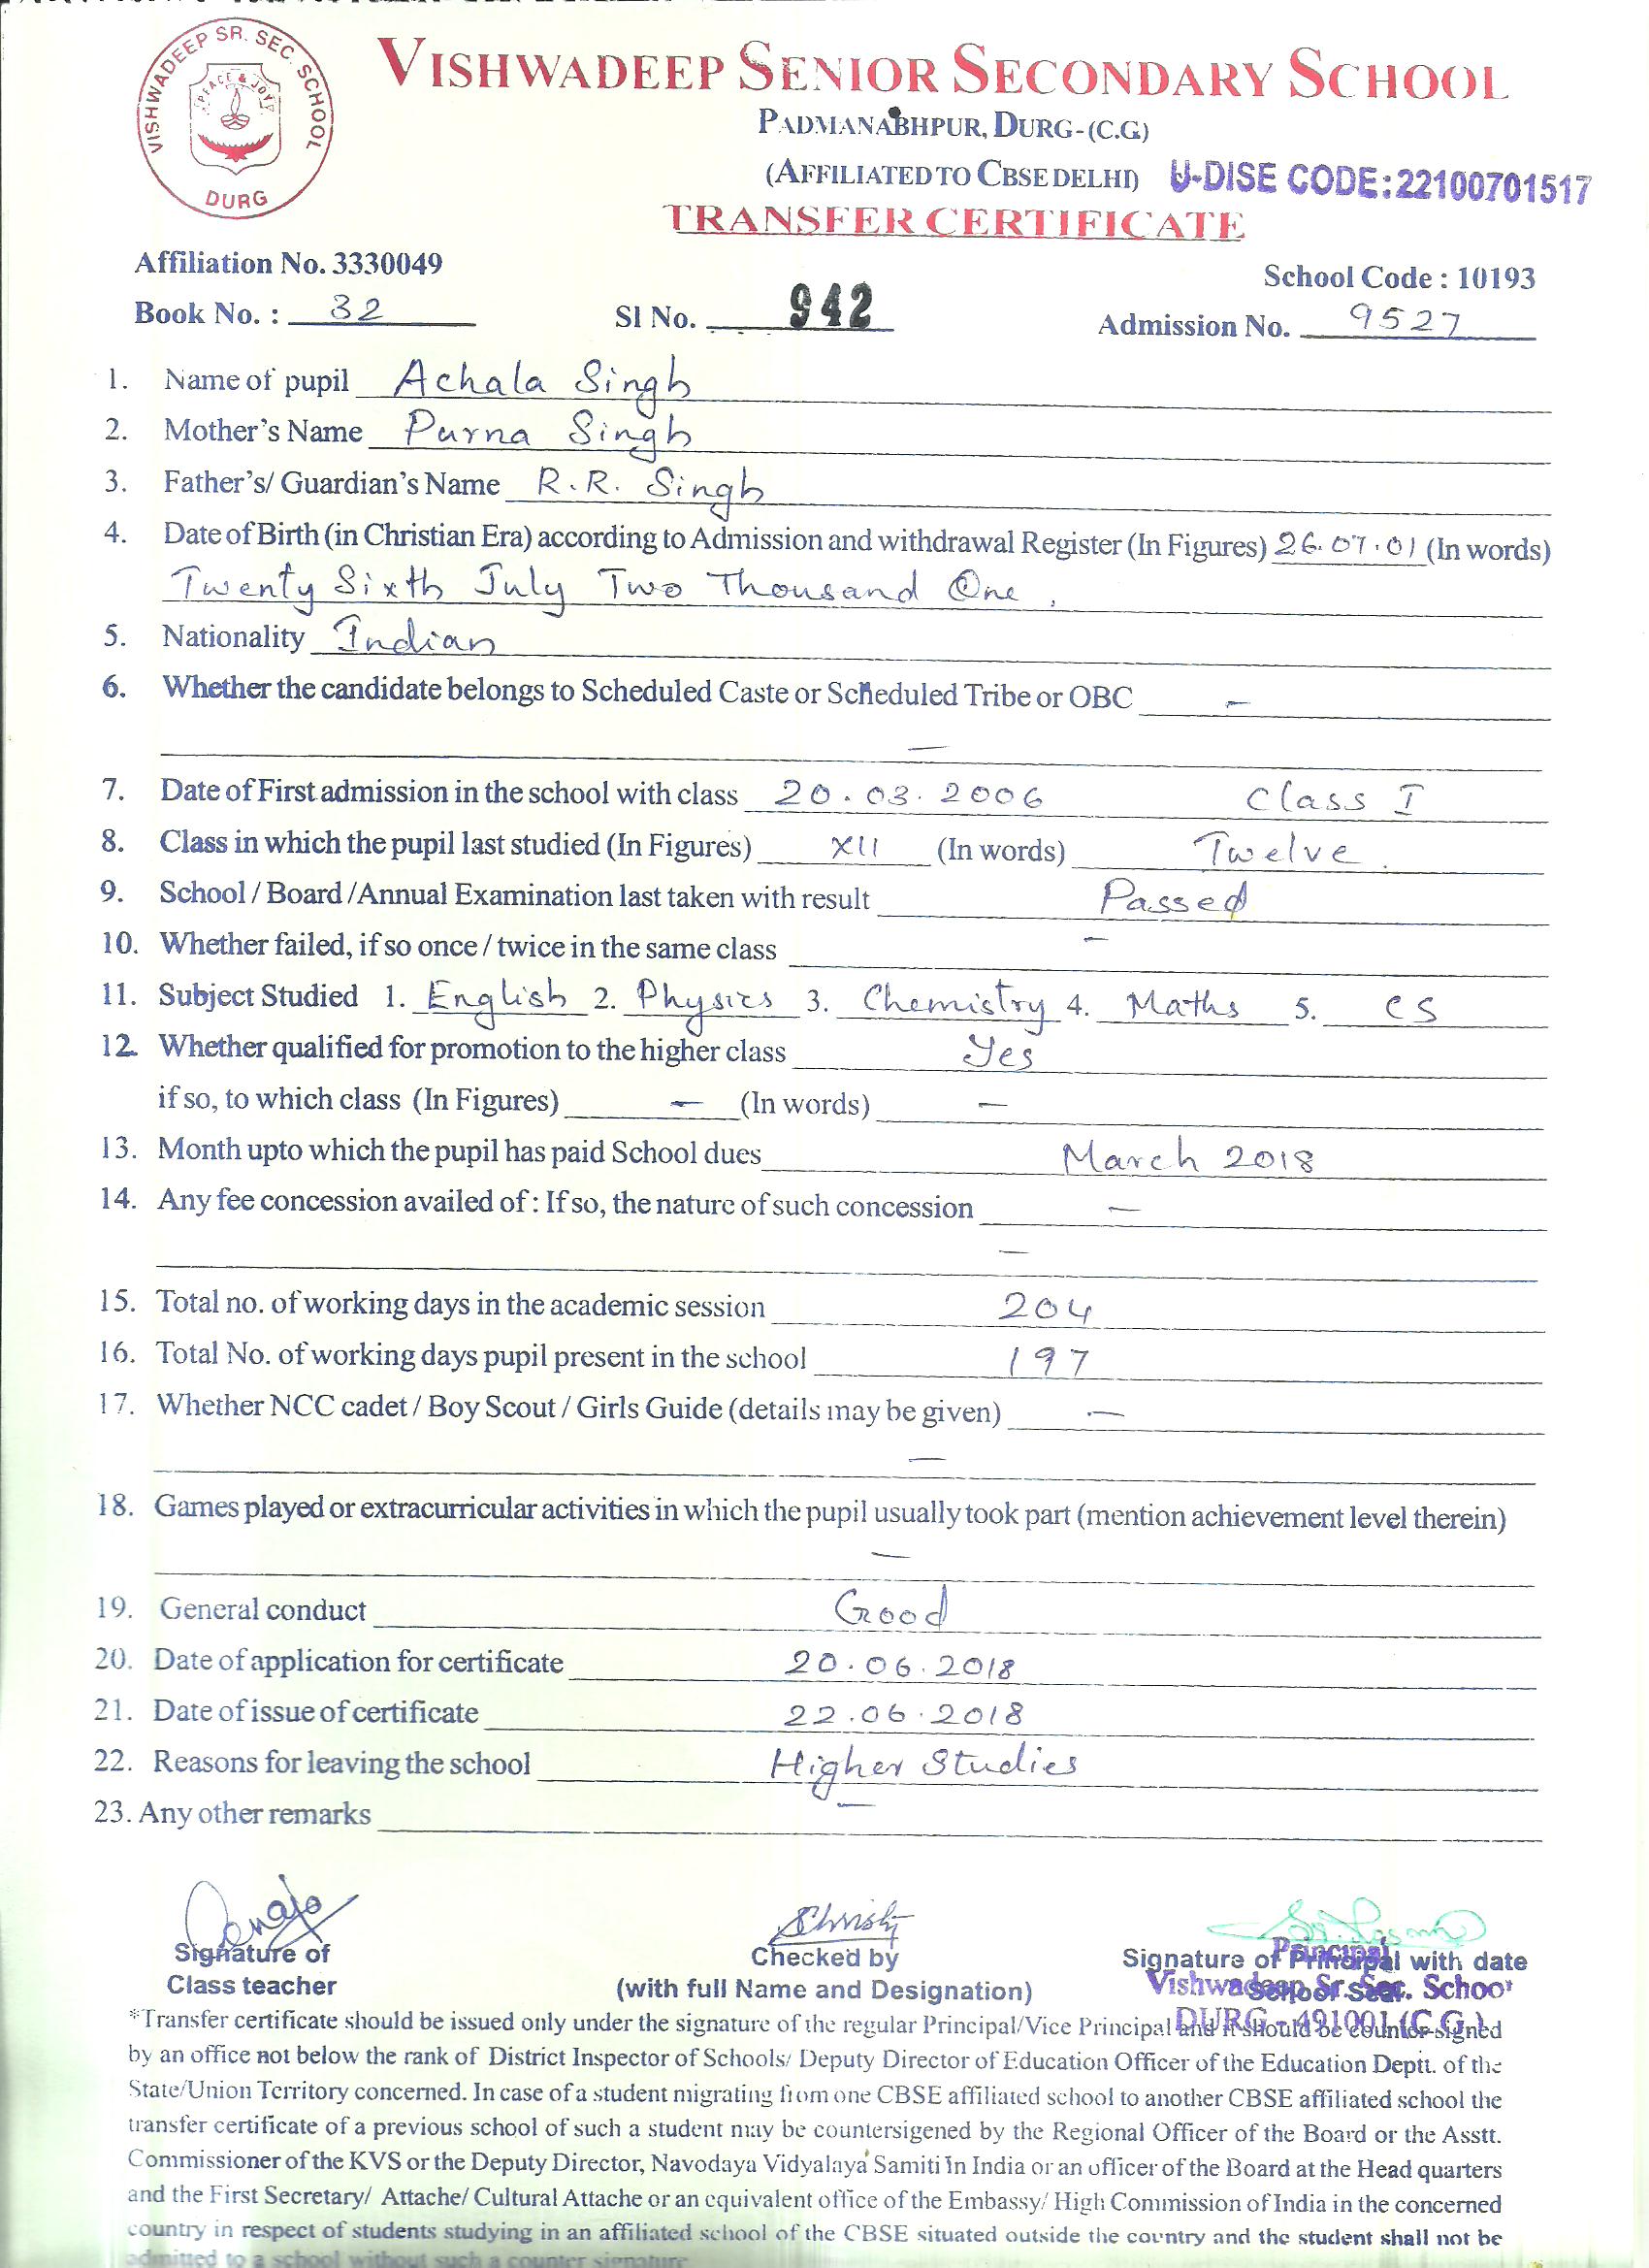 VISHWADEEP SR. SEC. SCHOOL
PEACE & JOY
DURG
VISHWADEEP SENIOR SECONDARY SCHOOL
PADMANABHPUR, DURG-(C.G)
(AFFILIATED TO CBSE DELHI) U-DISE CODE:22100701517
TRANSFER CERTIFICATE
Affiliation No. 3330049
School Code : 10193
Book No. : 32 Sl No. 942 Admission No. 9527
1. Name of pupil Achala Singh
2. Mother's Name Purna Singh
3. Father's/ Guardian's Name R.R. Singh
4. Date of Birth (in Christian Era) according to Admission and withdrawal Register (In Figures) 26.07.01 (In words)
Twenty Sixth July Two Thousand One.
5. Nationality Indian
6. Whether the candidate belongs to Scheduled Caste or Scheduled Tribe or OBC —
—
7. Date of First admission in the school with class 20.03.2006 Class I
8. Class in which the pupil last studied (In Figures) XII (In words) Twelve.
9. School / Board /Annual Examination last taken with result Passed
10. Whether failed, if so once / twice in the same class —
11. Subject Studied 1. English 2. Physics 3. Chemistry 4. Maths 5. CS
12. Whether qualified for promotion to the higher class Yes
if so, to which class (In Figures) — (In words) —
13. Month upto which the pupil has paid School dues March 2018
14. Any fee concession availed of : If so, the nature of such concession —
—
15. Total no. of working days in the academic session 204
16. Total No. of working days pupil present in the school 197
17. Whether NCC cadet / Boy Scout / Girls Guide (details may be given) —
—
18. Games played or extracurricular activities in which the pupil usually took part (mention achievement level therein)
—
19. General conduct Good
20. Date of application for certificate 20.06.2018
21. Date of issue of certificate 22.06.2018
22. Reasons for leaving the school Higher Studies
23. Any other remarks —
Signature of Checked by Signature of Principal with date
Principal
Class teacher (with full Name and Designation) School Seal
Vishwadeep Sr. Sec. School
DURG - 491001 (C.G.)
*Transfer certificate should be issued only under the signature of the regular Principal/Vice Principal and it should be counter-signed
by an office not below the rank of District Inspector of Schools/ Deputy Director of Education Officer of the Education Deptt. of the
State/Union Territory concerned. In case of a student migrating from one CBSE affiliated school to another CBSE affiliated school the
transfer certificate of a previous school of such a student may be countersigned by the Regional Officer of the Board or the Asstt.
Commissioner of the KVS or the Deputy Director, Navodaya Vidyalaya Samiti in India or an officer of the Board at the Head quarters
and the First Secretary/ Attache/ Cultural Attache or an equivalent office of the Embassy/ High Commission of India in the concerned
country in respect of students studying in an affiliated school of the CBSE situated outside the country and the student shall not be
admitted to a school without such a counter signature